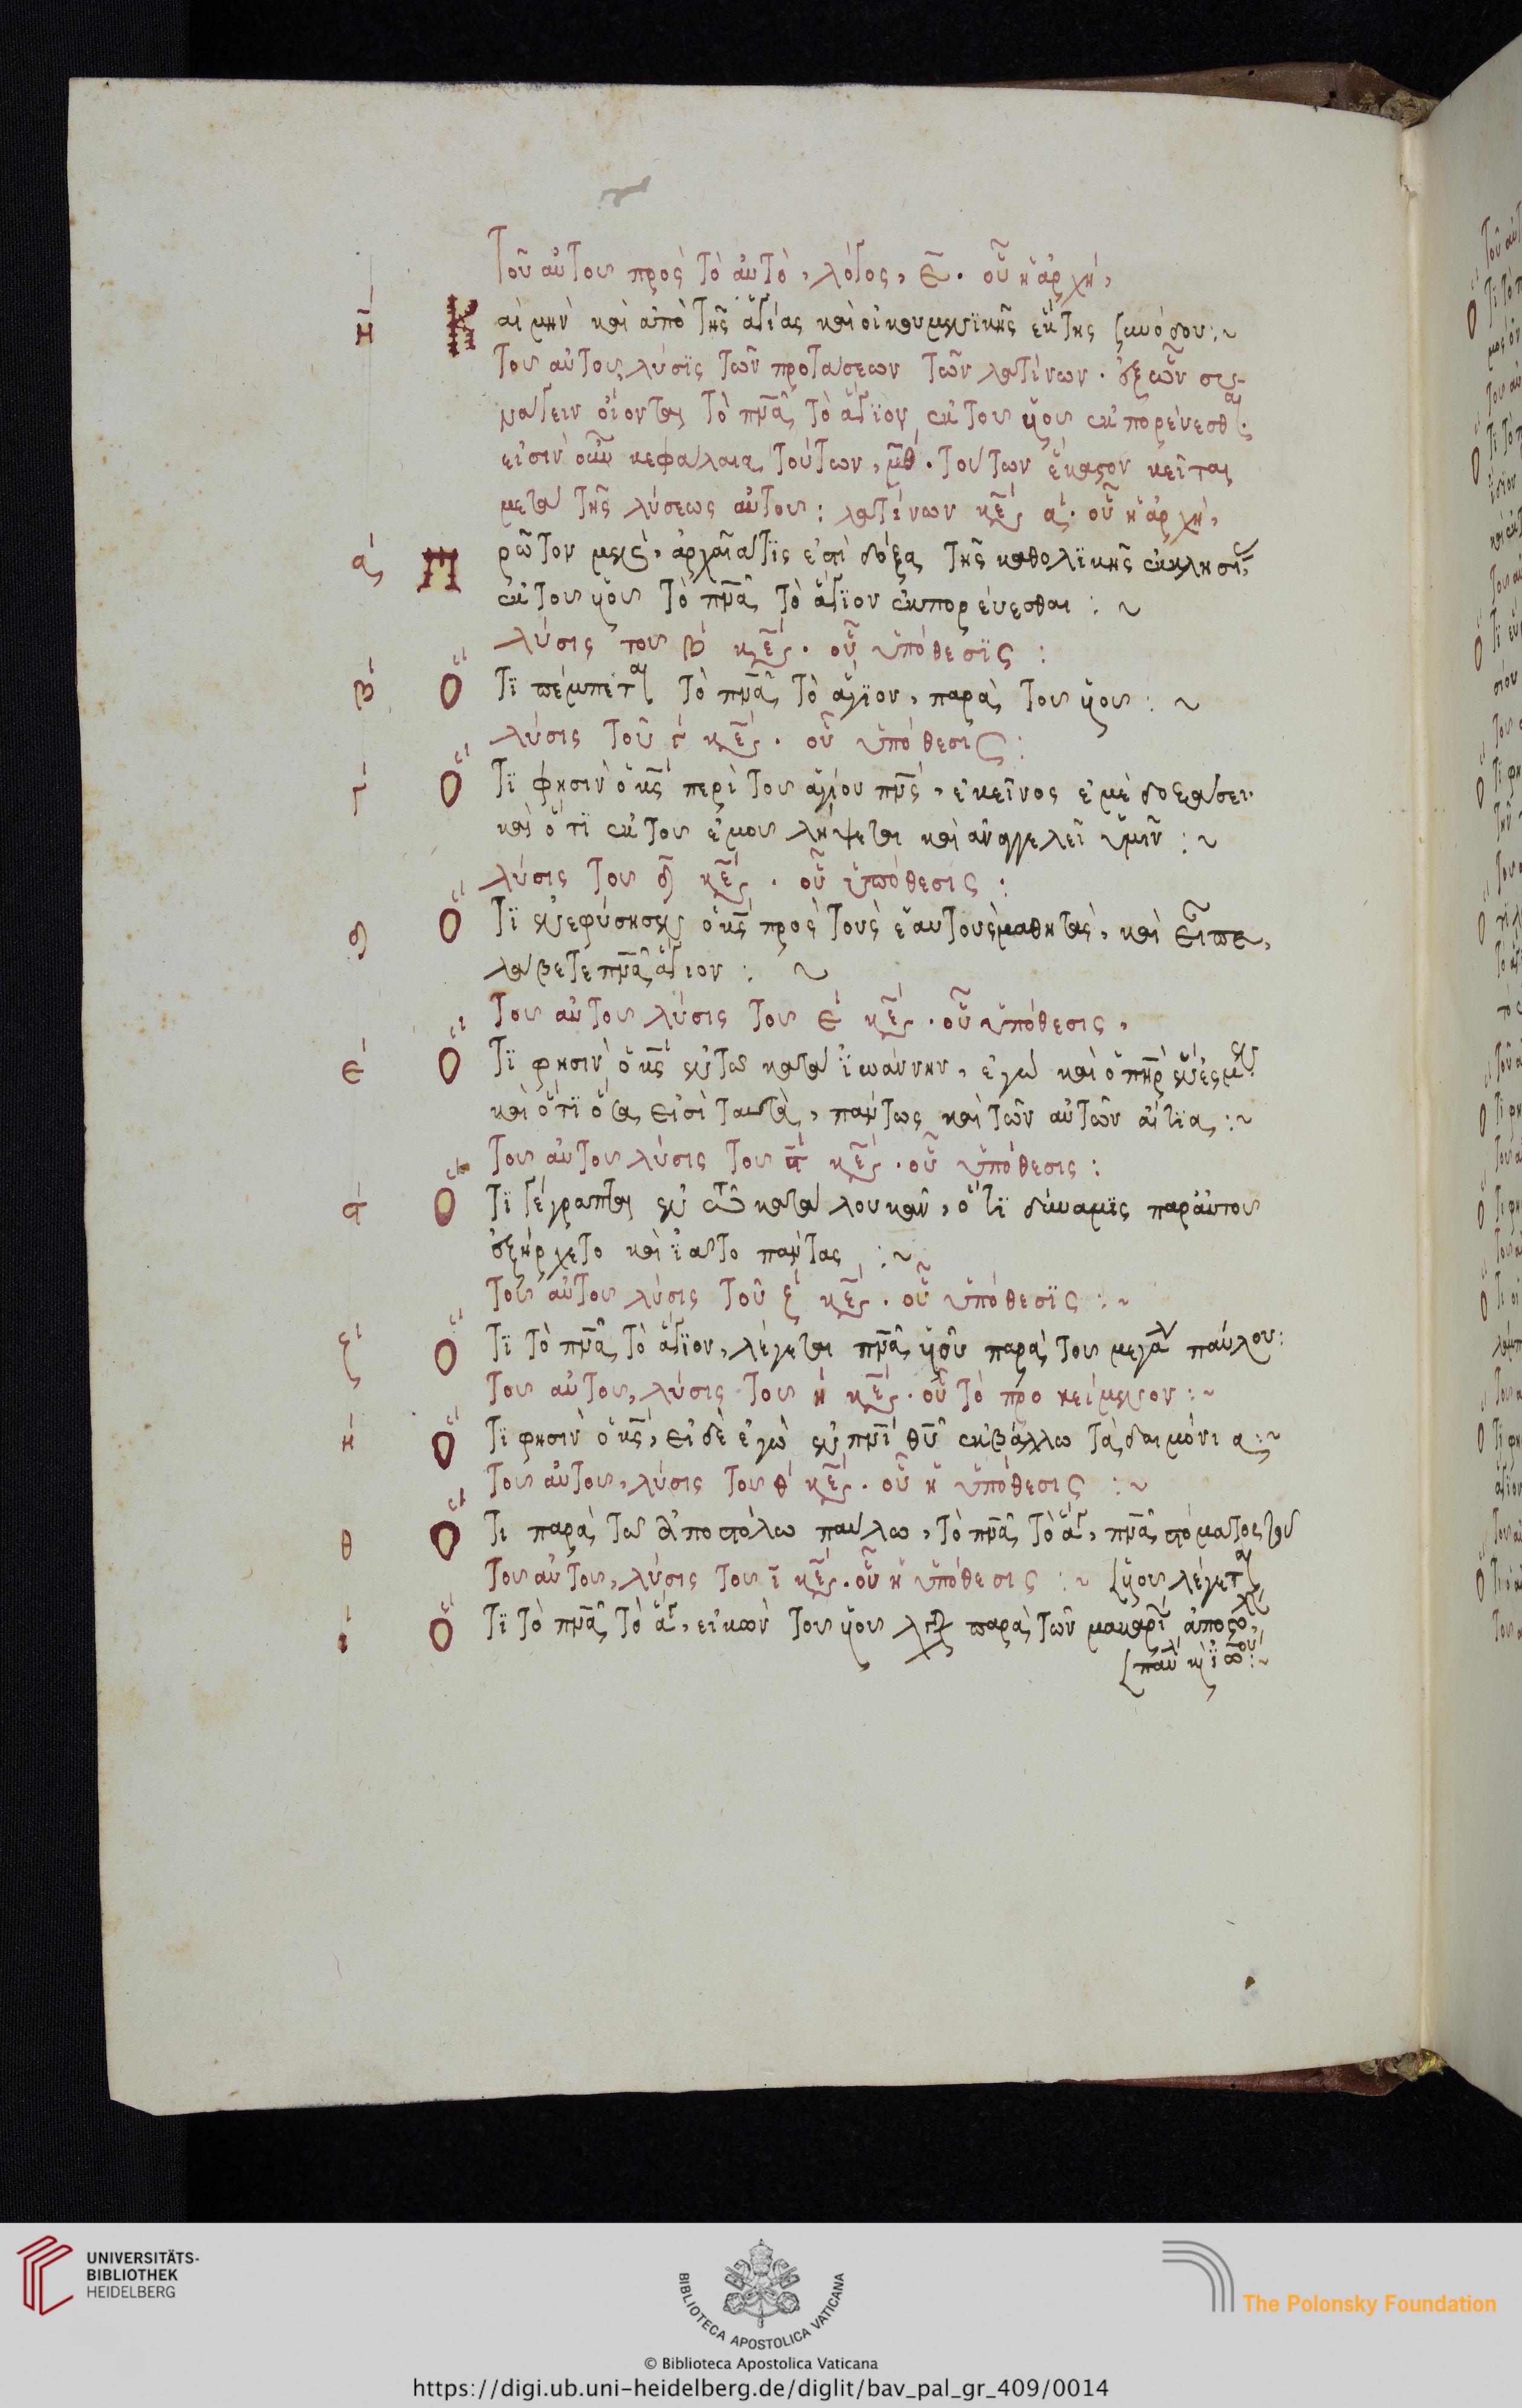 Τοῦ αὐτοῦ πρὸς τὸ αὐτὸ, λόγος, ε̅. οὗ ἡ ἀρχή,
η Καὶ μὴν καὶ ἀπὸ τῆς ἁγίας καὶ οἰκουμενϊκῆς ἕκτης συνόδου:~
τοῦ αὐτοῦ, λύσϊς τῶν προτάσεων τῶν λατίνων. ἐξ ὧν συ-
νάγειν οἴονται τὸ πν̅α̅ τὸ ἅγϊον ἐκ τοῦ υἱοῦ ἐκπορεύεσθαι.
εἰσὶν οὖν κεφάλαια τούτων, μθ. τούτων ἕκαστον κεῖται
μετὰ τῆς λύσεως αὐτοῦ: λατίνων κεφ α. οὗ ἡ ἀρχή,
α Πρῶτον μὲν, ἀρχαία τϊς ἐστὶ δόξα τῆς καθολϊκῆς ἐκκλησί
ἐκ τοῦ υἱοῦ τὸ πν̅α̅ τὸ ἅγϊον ἐκπορεύεσθαι:~
λύσις τοῦ β κεφ. οὗ ὑπόθεσϊς:
β Ὅτϊ πέμπεται τὸ πν̅α̅ τὸ ἅγϊον, παρὰ τοῦ υἱοῦ:~
λύσις τοῦ γ κεφ. οὗ ὑπόθεσις:
γ Ὅτϊ φησὶν ὁ κ̅ς̅ περὶ τοῦ ἁγίου πν̅ς̅, ἐκεῖνος ἐμὲ δοξάσει.
καὶ ὅτϊ ἐκ τοῦ ἐμοῦ λήψεται καὶ ἀναγγελεῖ ὑμῖν:~
λύσις τοῦ δ κεφ. οὗ ὑπόθεσις:
δ Ὅτϊ ἐνεφύσησεν ὁ κ̅ς̅ πρὸς τοὺς ἑαυτοῦ μαθητάς, καὶ εἶπε,
λάβετε πν̅α̅ ἅγιον:~
τοῦ αὐτοῦ λύσις τοῦ ε κεφ. οὗ ὑπόθεσις,
ε Ὅτϊ φησὶν ὁ κ̅ς̅ ἐν τῶ κατὰ ἰωάννην, ἐγὼ καὶ ὁ πη̅ρ̅ ἕν ἐσμεν
καὶ ὅτϊ ὅσα εἰσὶ ταυτὰ, πάντως καὶ τῶν αὐτῶν αἴτϊα:~
τοῦ αὐτοῦ λύσις τοῦ ϛ κεφ. οὗ ὑπόθεσις:
ϛ Ὅτϊ γέγραπται ἐν τῶ κατὰ λουκᾶν, ὅτϊ δύναμϊς παρ' αὐτοῦ
ἐξήρχετο καὶ ἰᾶτο πάντας:~
τοῦ αὐτοῦ λύσις τοῦ ζ κεφ. οὗ ὑπόθεσϊς:~
ζ Ὅτϊ τὸ πν̅α̅ τὸ ἅγϊον, λέγεται πν̅α̅ υἱοῦ παρὰ τοῦ μεγάλ παύλου:
τοῦ αὐτοῦ, λύσις τοῦ η κεφ. οὗ τὸ προκείμενον:~
η Ὅτϊ φησὶν ὁ κ̅ς̅, εἰ δὲ ἐγὼ ἐν πν̅ι̅ θ̅υ̅ ἐκβάλλω τὰ δαιμόνια:~
τοῦ αὐτοῦ, λύσις τοῦ θ κεφ. οὗ ἡ ὑπόθεσις:~
θ Ὅτι παρὰ τῶ ἀποστόλω παύλω, τὸ πν̅α̅ τὸ ἅγ, πν̅α̅ στόματος τοῦ
τοῦ αὐτοῦ, λύσις τοῦ ι κεφ. οὗ ἡ ὑπόθεσις:~ [υἱοῦ λέγεται
ι Ὅτϊ τὸ πν̅α̅ τὸ ἅγ, εἰκὼν τοῦ υἱοῦ παρὰ τῶν μακαρί ἀποστόλ
UNIVERSITÄTS-
BIBLIOTHEK
HEIDELBERG
BIBLIOTECA APOSTOLICA VATICANA
The Polonsky Foundation
© Biblioteca Apostolica Vaticana
https://digi.ub.uni-heidelberg.de/diglit/bav_pal_gr_409/0014